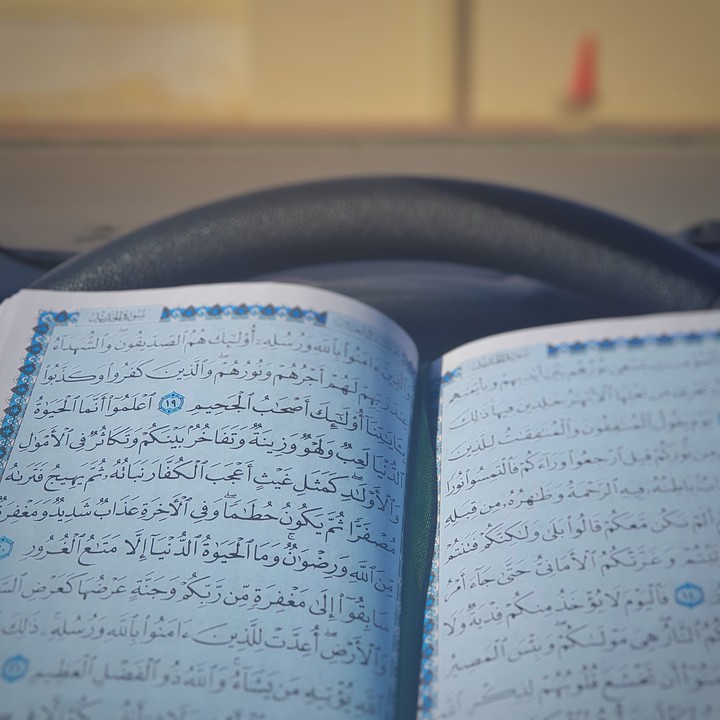 أَيْدِيهِمْ وَبِأَيْمَٰنِهِم
خَٰلِدِينَ فِيهَا ذَٰلِكَ
يَوْمَ يَقُولُ ٱلْمُنَٰفِقُونَ وَٱلْمُنَٰفِقَٰتُ لِلَّذِينَ
مِن نُّورِكُمْ قِيلَ ٱرْجِعُوا۟ وَرَآءَكُمْ فَٱلْتَمِسُوا۟ نُورًا
بَاطِنُهُۥ فِيهِ ٱلرَّحْمَةُ وَظَٰهِرُهُۥ مِن قِبَلِهِ
أَلَمْ نَكُن مَّعَكُمْ قَالُوا۟ بَلَىٰ وَلَٰكِنَّكُمْ فَتَنتُمْ
وَغَرَّتْكُمُ ٱلْأَمَانِىُّ حَتَّىٰ جَآءَ أَمْرُ
١٤ فَٱلْيَوْمَ لَا يُؤْخَذُ مِنكُمْ فِدْيَةٌ وَلَا
ٱلنَّارُ هِىَ مَوْلَىٰكُمْ وَبِئْسَ ٱلْمَصِيرُ
أَن تَخْشَعَ قُلُوبُهُمْ لِذِكْرِ
سُورَةُ الحَدِيد
وَٱلَّذِينَ ءَامَنُوا۟ بِٱللَّهِ وَرُسُلِهِۦٓ أُو۟لَٰٓئِكَ هُمُ ٱلصِّدِّيقُونَ وَٱلشُّهَدَآءُ
عِندَ رَبِّهِمْ لَهُمْ أَجْرُهُمْ وَنُورُهُمْ وَٱلَّذِينَ كَفَرُوا۟ وَكَذَّبُوا۟
بِـَٔايَٰتِنَآ أُو۟لَٰٓئِكَ أَصْحَٰبُ ٱلْجَحِيمِ ١٩ ٱعْلَمُوٓا۟ أَنَّمَا ٱلْحَيَوٰةُ
ٱلدُّنْيَا لَعِبٌ وَلَهْوٌ وَزِينَةٌ وَتَفَاخُرٌۢ بَيْنَكُمْ وَتَكَاثُرٌ فِى ٱلْأَمْوَٰلِ
وَٱلْأَوْلَٰدِ كَمَثَلِ غَيْثٍ أَعْجَبَ ٱلْكُفَّارَ نَبَاتُهُۥ ثُمَّ يَهِيجُ فَتَرَىٰهُ
مُصْفَرًّا ثُمَّ يَكُونُ حُطَٰمًا وَفِى ٱلْأَخِرَةِ عَذَابٌ شَدِيدٌ وَمَغْفِرَةٌ
مِّنَ ٱللَّهِ وَرِضْوَٰنٌ وَمَا ٱلْحَيَوٰةُ ٱلدُّنْيَآ إِلَّا مَتَٰعُ ٱلْغُرُورِ ٢٠
سَابِقُوٓا۟ إِلَىٰ مَغْفِرَةٍ مِّن رَّبِّكُمْ وَجَنَّةٍ عَرْضُهَا كَعَرْضِ
وَٱلْأَرْضِ أُعِدَّتْ لِلَّذِينَ ءَامَنُوا۟ بِٱللَّهِ وَرُسُلِهِۦ ذَٰلِكَ
ٱللَّهِ يُؤْتِيهِ مَن يَشَآءُ وَٱللَّهُ ذُو ٱلْفَضْلِ ٱلْعَظِيمِ ٢١